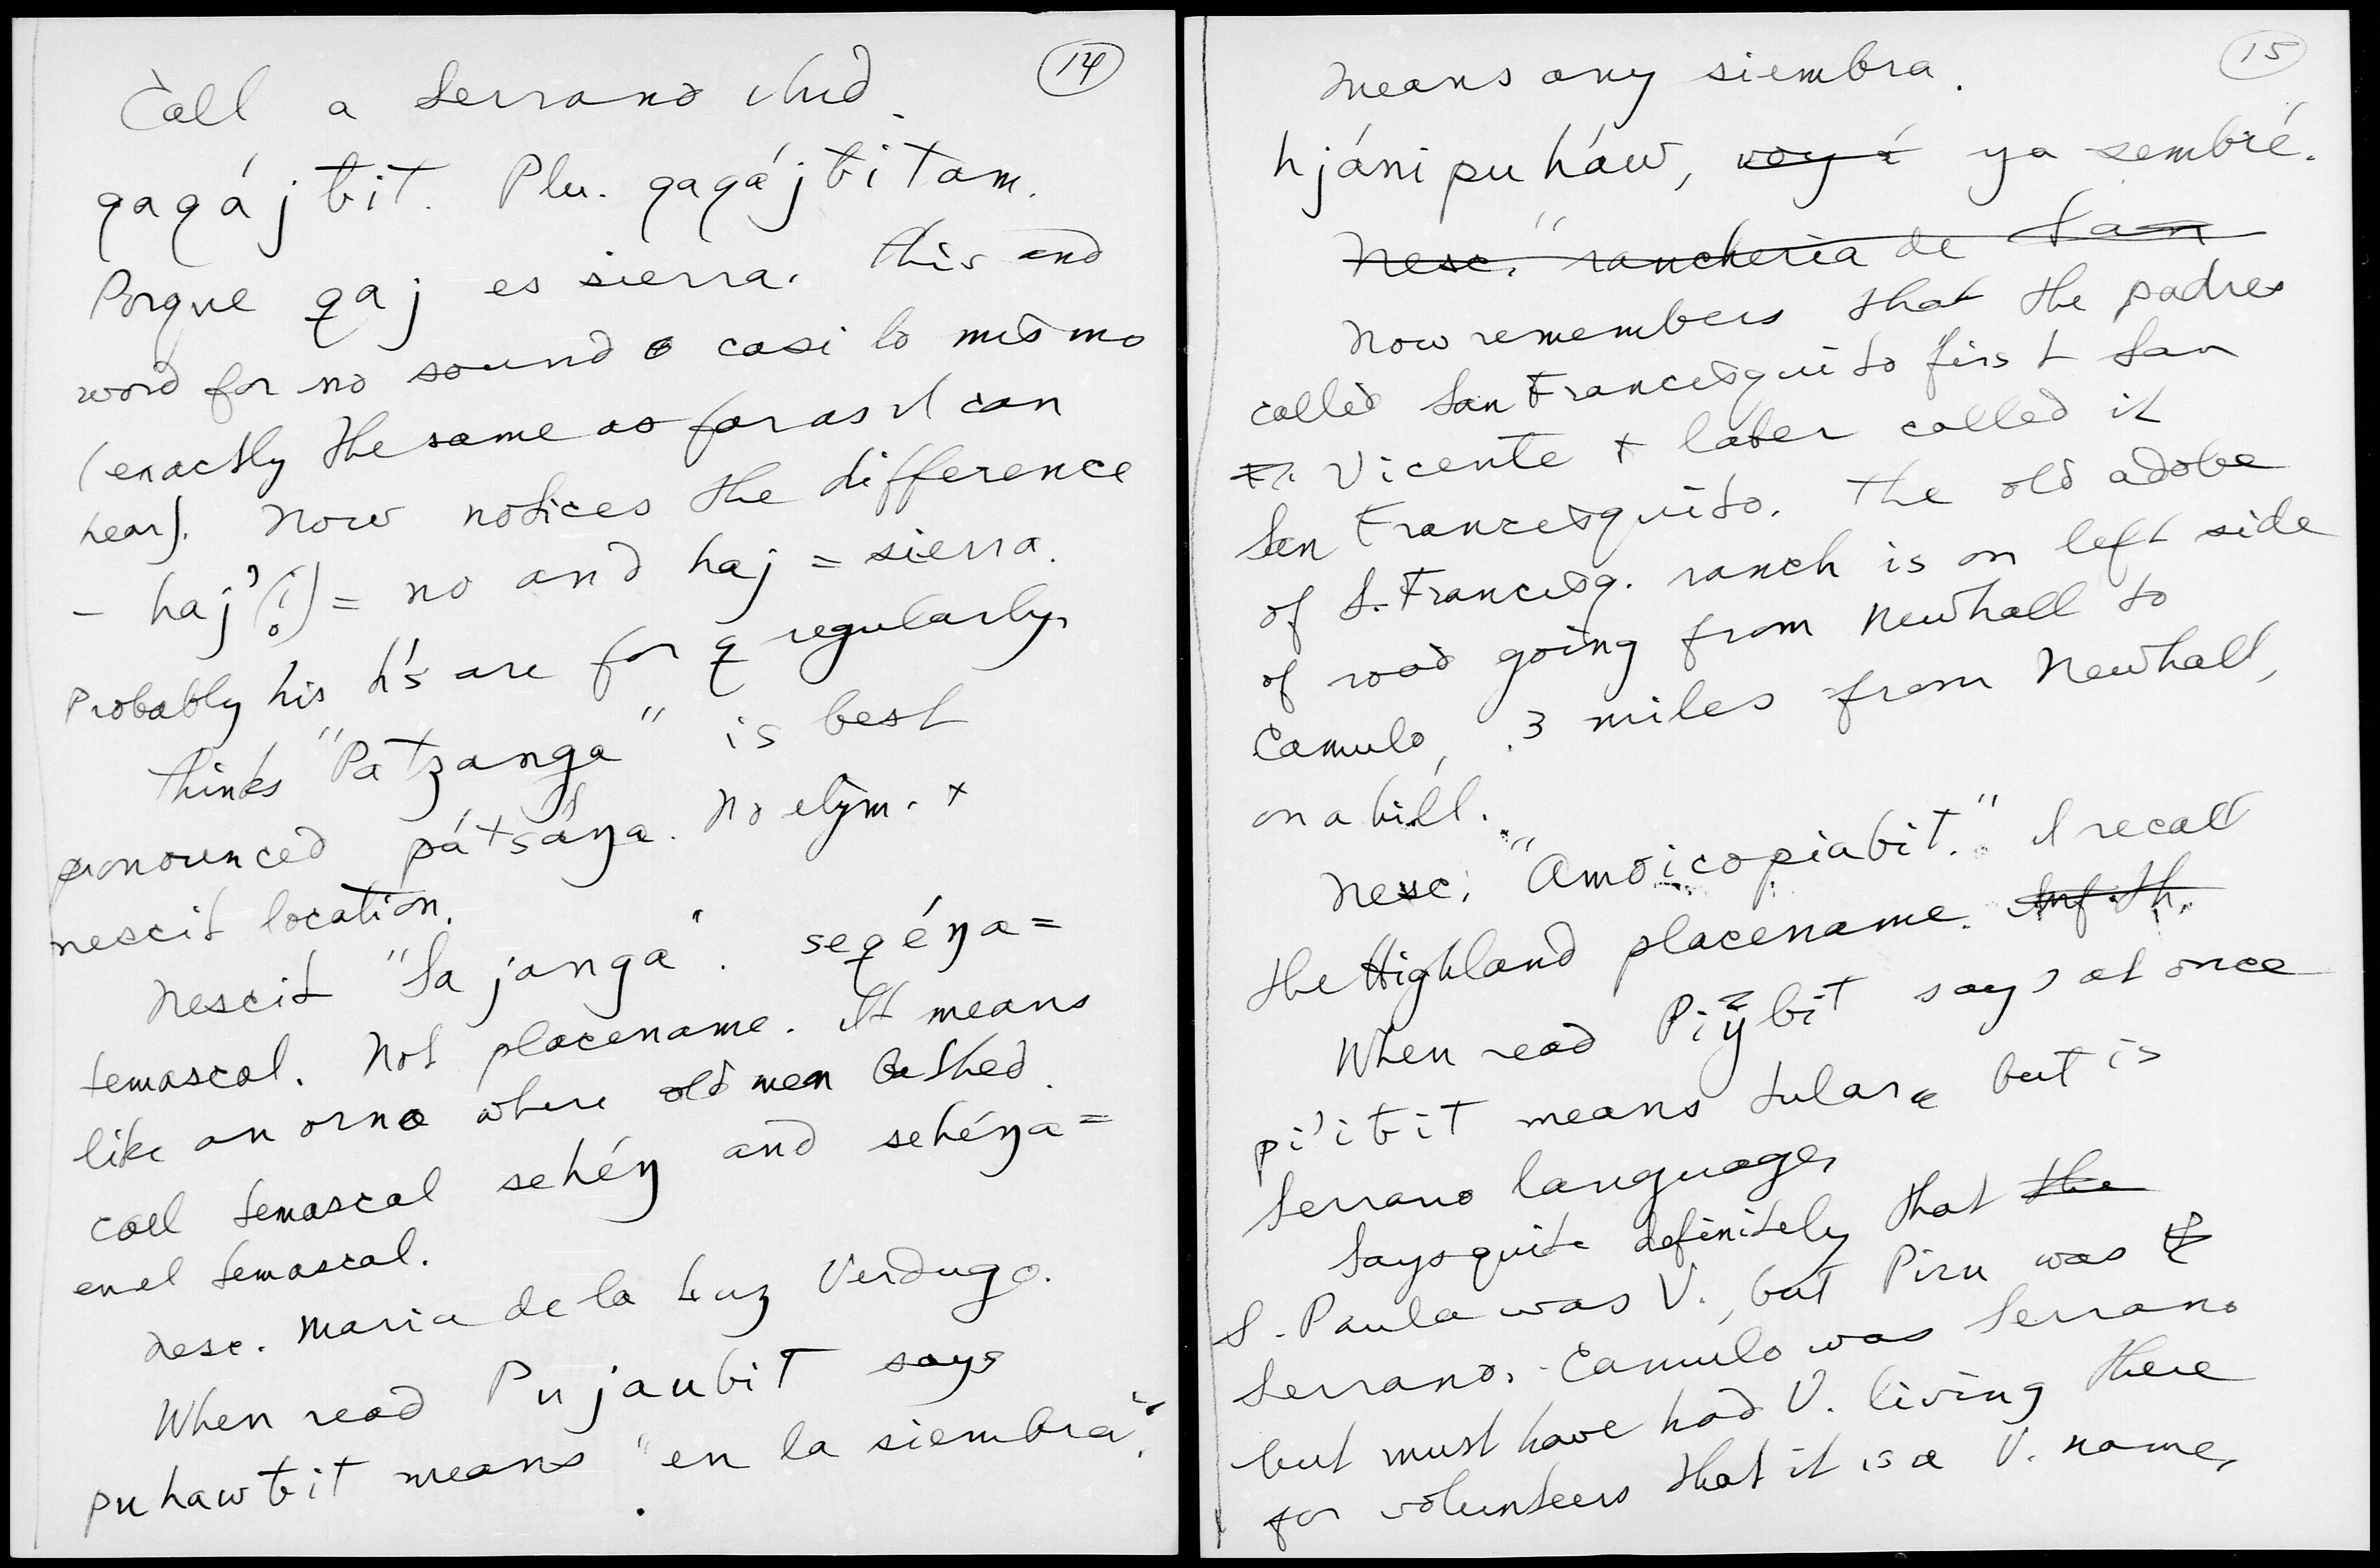 14
Call a Serrano Ind.
qaqáj ƀit. Plu. qaqáj ƀitam.
Porque qaj es sierra. This and
word for no sound casi lo mismo
(exactly the same as far as I can
hear). Now notices the difference
– haj’(i̥) = no and haj = sierra.
Probably his h's are for q regularly.
Thinks "Patzanga" is best
pronounced pátsáŋa. No etym. +
nescit location.
Nescit "Sajanga". seqéŋa =
temascal. Not placename. It means
like an orno where old men bathed.
Call temascal sehéŋ and sehéŋa =
en el temascal.
Nesc. Maria de la Luz Verdugo.
When read Pujaubit says
puhawƀit means "en la siembra".
15
means any siembra.
hjáni puháw, voy á ya sembré.
Nesc. "rancheria de San
Now remembers that the padres
called San Francisquito first San
Fr. Vicente + later called it
San Francisquito. The old adobe
of S. Francisq. ranch is on left side
of road going from Newhall to
Camulo, 3 miles from Newhall,
on a hill.
Nesc. "Amoicopiabit." I recall
the Highland placename. Inf. th.
When read Piÿbit says at once
pi’iƀit means tulare but is
Serrano language.
Says quite definitely that the
S. Paula was V., but Piru was
Serrano. Camulo was Serrano
but must have had V. living there
for volunteers that it is a V. name,